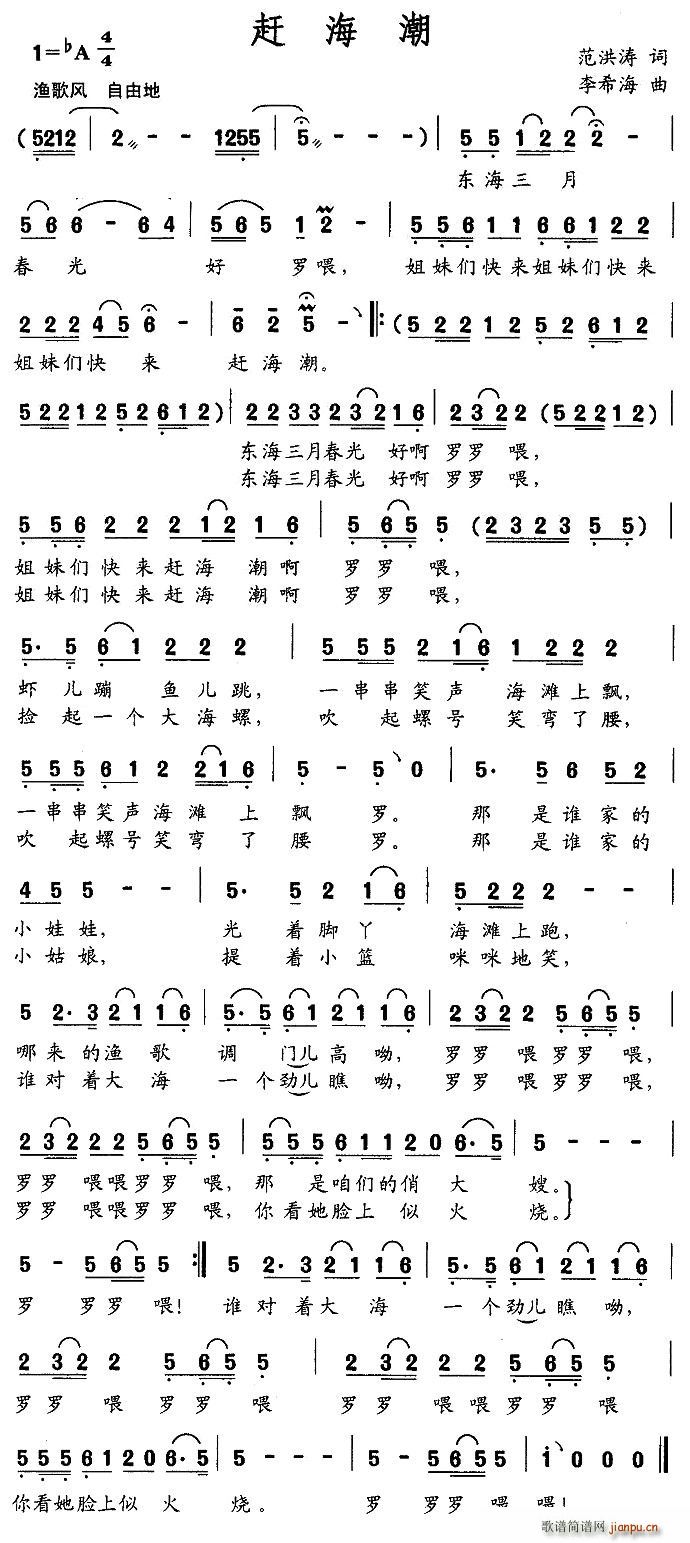 赶海潮
1=♭A 4/4
范洪涛 词
渔歌风 自由地
李希海 曲
(5212 | 2 - - 1255 | 5 - - ) | 5 5 1 2 2 2 - |
东海三 月
5 6 6 - 6 4 | 5 6 5 1 2 - | 5 5 6 1 1 6 6 1 2 2 |
春光 好 罗喂, 姐妹们快来姐妹们快来
2 2 2 4 5 6 - | 6 2 5 - 𝄆 (5 2 2 1 2 5 2 6 1 2 |
姐妹们快 来 赶海潮。
5 2 2 1 2 5 2 6 1 2) | 2 2 3 3 2 3 2 1 6 | 2 3 2 2 (5 2 2 1 2) |
东海三月春光 好啊 罗罗 喂,
东海三月春光 好啊 罗罗 喂,
5 5 6 2 2 2 1 2 1 6 | 5 6 5 5 (2 3 2 3 5 5) |
姐妹们快来赶海 潮啊 罗罗 喂,
姐妹们快来赶海 潮啊 罗罗 喂,
5· 5 6 1 2 2 2 | 5 5 5 2 1 6 1 2 2 2 |
虾儿蹦 鱼儿跳, 一串串笑声 海滩上飘,
捡起一个大海螺, 吹 起螺号 笑弯了腰,
5 5 5 6 1 2 2 1 6 | 5 - 5 0 | 5· 5 6 5 2 |
一串串笑声海滩 上 飘 罗。 那 是谁家的
吹 起螺号笑弯 了 腰 罗。 那 是谁家的
4 5 5 - - | 5· 5 2 1 6 | 5 2 2 2 - - |
小娃娃, 光 着脚丫 海滩上跑,
小姑娘, 提 着小篮 咪咪地笑,
5 2· 3 2 1 1 6 | 5· 5 6 1 2 1 1 6 | 2 3 2 2 5 6 5 5 |
哪来的渔歌 调 门儿高呦, 罗罗 喂罗罗 喂,
谁对着大海 一个劲儿瞧呦, 罗罗 喂罗罗 喂,
2 3 2 2 2 5 6 5 5 | 5 5 5 6 1 1 2 0 6· 5 | 5 - - - |
罗罗 喂喂罗罗 喂, 那 是咱们的俏 大 嫂。
罗罗 喂喂罗罗 喂, 你看她脸上 似 火 烧。
5 - 5 6 5 5 𝄇 5 2· 3 2 1 1 6 | 5· 5 6 1 2 1 1 6 |
罗 罗罗 喂! 谁对着大海 一个劲儿瞧呦,
2 3 2 2 5 6 5 5 | 2 3 2 2 2 5 6 5 5 |
罗罗 喂 罗罗 喂 罗罗 喂喂罗罗 喂
5 5 5 6 1 2 0 6· 5 | 5 - - - | 5 - 5 6 5 5 | i 0 0 0 ‖
你看她脸上似 火 烧。 罗 罗罗喂 喂!
歌谱简谱网
jianpu.cn